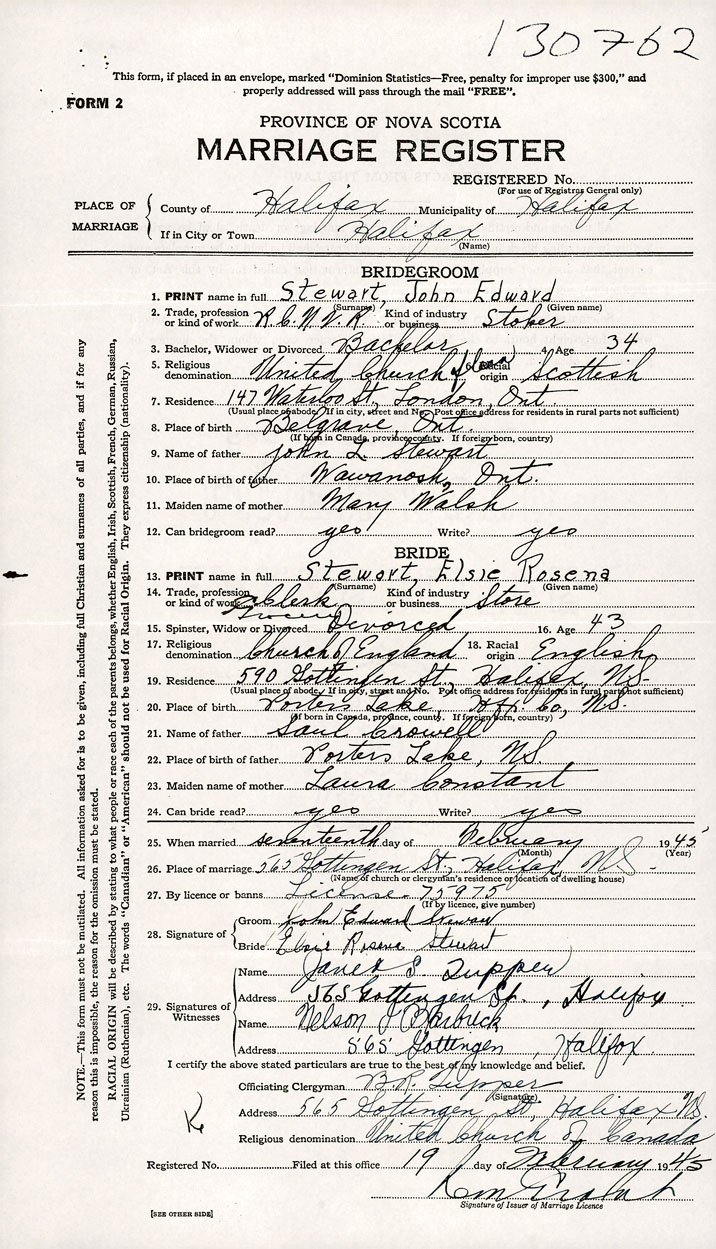 130762
This form, if placed in an envelope, marked "Dominion Statistics—Free, penalty for improper use $300," and
properly addressed will pass through the mail "FREE".
FORM 2
PROVINCE OF NOVA SCOTIA
MARRIAGE REGISTER
REGISTERED No.
(For use of Registrar General only)
PLACE OF MARRIAGE
County of Halifax Municipality of Halifax
If in City or Town Halifax
(Name)
BRIDEGROOM
1. PRINT name in full Stewart, John Edward
(Surname) (Given name)
2. Trade, profession or kind of work R.C.N.V.R. Kind of industry or business Stoker
3. Bachelor, Widower or Divorced Bachelor 4. Age 34
5. Religious denomination United Church of Can Racial origin Scottish
7. Residence 147 Waterloo St., London, Ont.
(Usual place of abode. If in city, street and No. Post office address for residents in rural parts not sufficient)
8. Place of birth Belgrave, Ont.
(If born in Canada, province, county. If foreign born, country)
9. Name of father John L. Stewart
10. Place of birth of father Wawanosh, Ont.
11. Maiden name of mother Mary Walsh
12. Can bridegroom read? yes Write? yes
BRIDE
13. PRINT name in full Stewart, Elsie Rosena
(Surname) (Given name)
14. Trade, profession or kind of work Clerk Grocery Kind of industry or business Store
15. Spinster, Widow or Divorced Divorced 16. Age 43
17. Religious denomination Church of England 18. Racial origin English
19. Residence 590 Gottingen St., Halifax, N.S.
(Usual place of abode. If in city, street and No. Post office address for residents in rural parts not sufficient)
20. Place of birth Porters Lake, Hfx. Co., N.S.
(If born in Canada, province, county. If foreign born, country)
21. Name of father Saul Crowell
22. Place of birth of father Porters Lake, NS
23. Maiden name of mother Laura Constant
24. Can bride read? yes Write? yes
25. When married seventeenth day of February 1945
(Month) (Year)
26. Place of marriage 565 Gottingen St., Halifax, NS.
(Name of church or clergyman's residence or location of dwelling house)
27. By licence or banns License 75975
(If by licence, give number)
28. Signature of Groom John Edward Stewart
Bride Elsie Rosena Stewart
29. Signatures of Witnesses
Name Janet S. Tupper
Address 565 Gottingen St., Halifax
Name Nelson J
Address 565 Gottingen, Halifax.
I certify the above stated particulars are true to the best of my knowledge and belief.
Officiating Clergyman B.R. Tupper
(Signature)
Address 565 Gottingen St, Halifax NS.
Religious denomination United Church of Canada
Registered No. Filed at this office 19 day of February 1945
Signature of Issuer of Marriage Licence
[SEE OTHER SIDE]
NOTE.—This form must not be mutilated. All information asked for is to be given, including full Christian and surnames of all parties, and if for any
reason this is impossible, the reason for the omission must be stated.
RACIAL ORIGIN will be described by stating to what people or race each of the parents belongs, whether English, Irish, Scottish, French, German, Russian,
Ukrainian (Ruthenian), etc. The words "Canadian" or "American" should not be used for Racial Origin. They express citizenship (nationality).